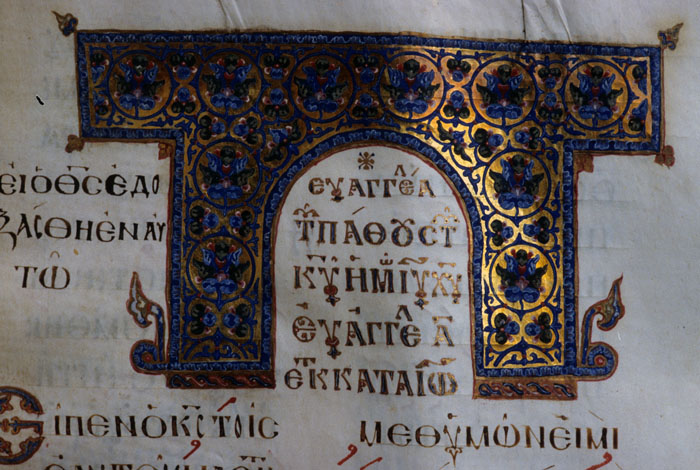 ΕΙΟΘ͞ΣΕΔΟ
ΞΑΣΘΗΕΝΑΥ
ΤΩ
ΕΥΑΓΓΕΛΑ
ΤΠΑΘΟΥΣΤ
Κ͞ΥΗΜΙ͞ΥΧ͞Υ
ΕΥΑΓΓΕΛΑ
ΕΚΚΑΤΑΙΩ
ΕΙΠΕΝΟΚ͞ΣΤΟΙΣ
ΜΕΘΥΜΩΝΕΙΜΙ